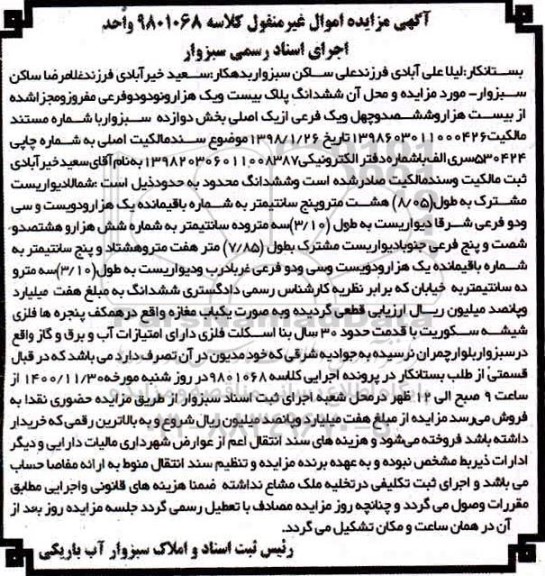 آگهی مزایده اموال غیرمنقول کلاسه ۹۸۰۱۰۶۸ واحد
اجرای اسناد رسمی سبزوار
بستانکار:لیلا علی آبادی فرزندعلی ساکن سبزواربدهکار:سعید خیرآبادی فرزندغلامرضا ساکن
سبزوار- مورد مزایده و محل آن ششدانگ پلاک بیست ویک هزارونودودوفرعی مفروزومجزاشده
از بیست هزاروششصدوچهل ویک فرعی ازیک اصلی بخش دوازده سبزواربا شماره مستند
مالکیت۱۳۹۸۶۰۳۰۱۱۰۰۰۴۲۶ تاریخ ۱۳۹۸/۱/۲۶موضوع سندمالکیت اصلی به شماره چاپی
۵۳۰۴۲۴سری الف باشماره دفتر الکترونیکی۱۳۹۸۲۰۳۰۶۰۱۱۰۰۸۳۸۷به نام آقای سعید خیرآبادی
ثبت مالکیت وسندمالکیت صادرشده است وششدانگ محدود به حدودذیل است :شمالادیواریست
مشترک به طول(۸/۰۵) هشت متروپنج سانتیمتر به شماره باقیمانده یک هزارودویست و سی
ودو فرعی شرقا دیواریست به طول (۳/۱۰)سه متروده سانتیمتر به شماره شش هزارو هشتصدو
شصت و پنج فرعی جنوبادیواریست مشترک بطول (۷/۸۵) متر هفت متروهشتاد و پنج سانتیمتر به
شماره باقیمانده یک هزارودویست وسی ودو فرعی غربادرب ودیواریست به طول(۳/۱۰)سه مترو
ده سانتیمتربه خیابان که برابر نظریه کارشناس رسمی دادگستری ششدانگ به مبلغ هفت میلیارد
وپانصد میلیون ریال ارزیابی قطعی گردیده وبه صورت یکباب مغازه واقع درهمکف پنجره ها فلزی
شیشه سکوریت با قدمت حدود ۳۰ سال بنا اسکلت فلزی دارای امتیازات آب و برق و گاز واقع
درسبزواربلوارچمران نرسیده به جوادیه شرقی که خود مدیون در آن تصرف دارد می باشد که در قبال
قسمتی از طلب بستانکار در پرونده اجرایی کلاسه ۹۸۰۱۰۶۸در روز شنبه مورخه۱۴۰۰/۱۱/۳۰ از
ساعت ۹ صبح الی ۱۲ ظهر درمحل شعبه اجرای ثبت اسناد سبزوار از طریق مزایده حضوری نقدا به
فروش می رسد مزایده از مبلغ هفت میلیارد وپانصد میلیون ریال شروع و به بالاترین رقمی که خریدار
داشته باشد فروخته می‌شود و هزینه های سند انتقال اعم از عوارض شهرداری مالیات دارایی و دیگر
ادارات ذیربط مشخص نبوده و به عهده برنده مزایده و تنظیم سند انتقال منوط به ارائه مفاصا حساب
می باشد و اجرای ثبت تکلیفی درتخلیه ملک مشاع نداشته ضمنا هزینه های قانونی واجرایی مطابق
مقررات وصول می گردد و چنانچه روز مزایده مصادف با تعطیل رسمی گردد جلسه مزایده روز بعد از
آن در همان ساعت و مکان تشکیل می گردد.
رئیس ثبت اسناد و املاک سبزوار آب باریکی